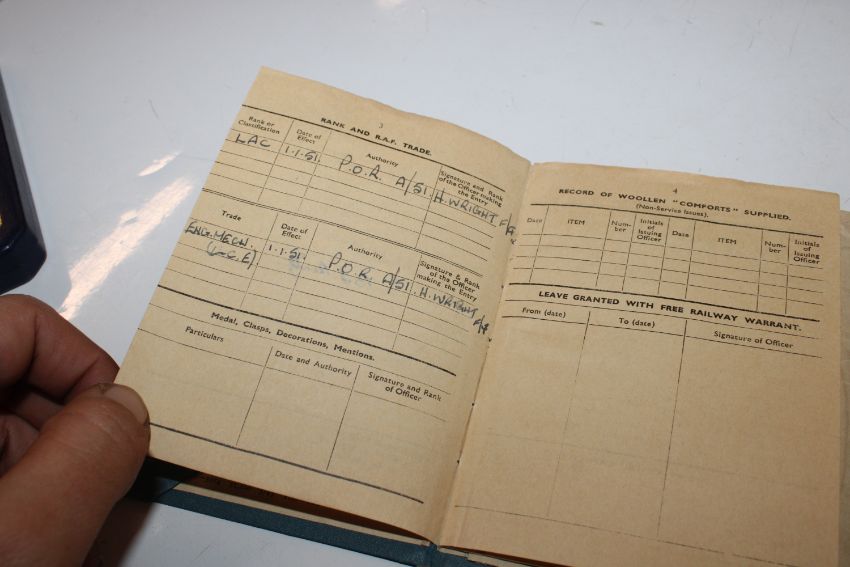 3
RANK AND R.A.F. TRADE.
Rank or Classification
Date of Effect
Authority
Signature and Rank of the Officer making the Entry
LAC 1.1.51. P.O.R. A/51 H.WRIGHT
Trade
Date of Effect
Authority
Signature & Rank of the Officer making the Entry
ENG.MECH. 1.1.51. P.O.R A/51. H.WRIGHT
Medal, Clasps, Decorations, Mentions.
Particulars
Date and Authority
Signature and Rank of Officer
4
RECORD OF WOOLLEN "COMFORTS" SUPPLIED.
(Non-Service Issues).
Date
ITEM
Num-ber
Initials of Issuing Officer
Date
ITEM
Num-ber
Initials of Issuing Officer
LEAVE GRANTED WITH FREE RAILWAY WARRANT.
From (date)
To (date)
Signature of Officer